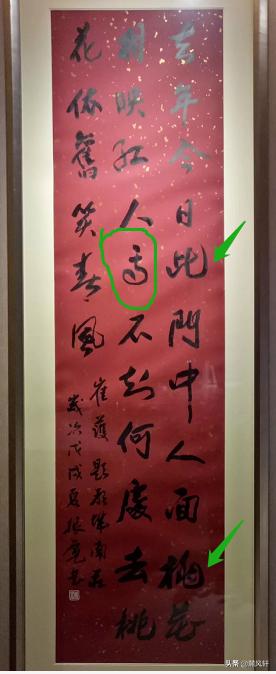 去年今日此門中人面桃花
相映紅人面不知何處去桃
花依舊笑春風
崔護題都城南莊
歲次戊戌夏振書
头条